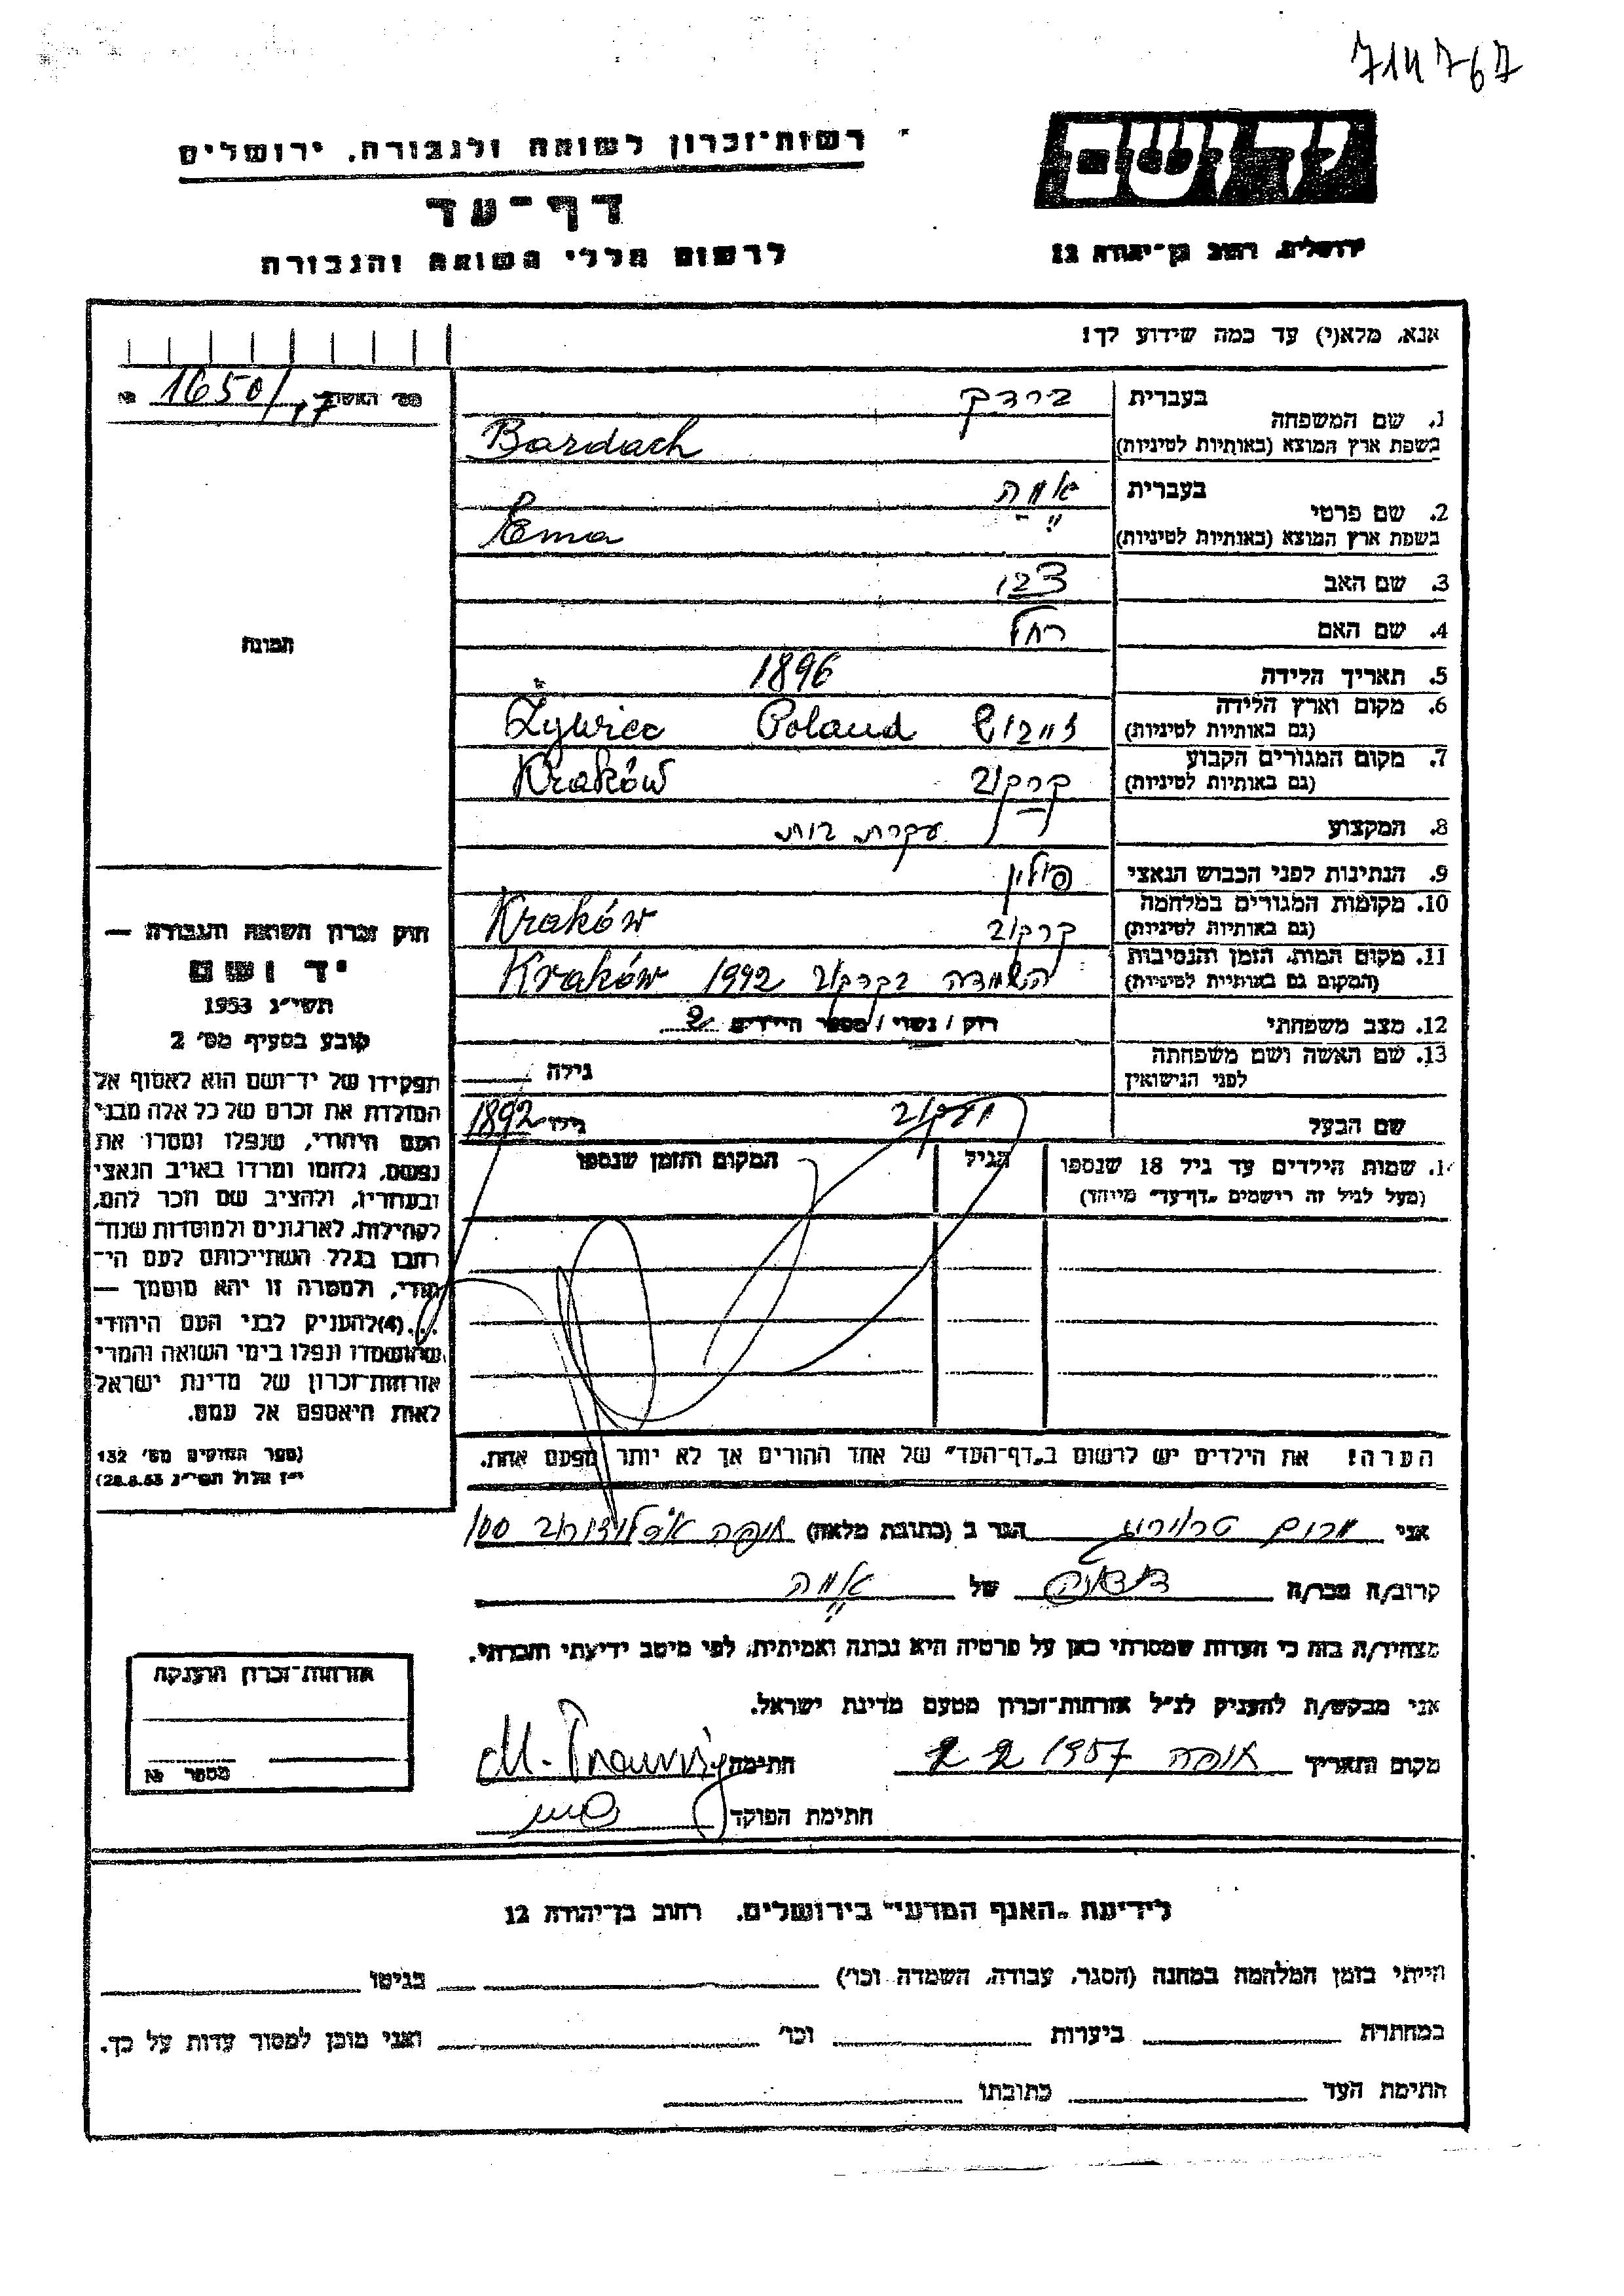 714767
רשות־זכרון לשואה ולגבורה, ירושלים
יד ושם
דף־עד
לרשום חללי השואה והגבורה
ירושלים, רחוב בן־יהודה 12
אנא, מלא(י) עד כמה שידוע לך!
מס׳ האשה № 1650/17
1. שם המשפחה
בעברית ברדך
בשפת ארץ המוצא (באותיות לטיניות) Bardach
2. שם פרטי
בעברית אמה
בשפת ארץ המוצא (באותיות לטיניות) Ema
3. שם האב
4. שם האם רחל
5. תאריך הלידה 1896
6. מקום וארץ הלידה
(גם באותיות לטיניות) Poland Żywiec
7. מקום המגורים הקבוע
(גם באותיות לטיניות) קרקוב Kraków
8. המקצוע עקרת בית
9. הנתינות לפני הכבוש הנאצי פולין
10. מקומות המגורים במלחמה
(גם באותיות לטיניות) קרקוב Kraków
11. מקום המות, הזמן והנסיבות
(המקום גם באותיות לטיניות) השמדה בקרקוב 1942 Kraków
12. מצב משפחתי רוק / נשוי / מספר הילדים 2
13. שם האשה ושם משפחתה
לפני הנישואין גילה
שם הבעל יעקוב גילו 1892
14. שמות הילדים עד גיל 18 שנספו
(מעל לגיל זה רישמים „דף־עד״ מיוחד)
הגיל
המקום והזמן שנספו
הערה! את הילדים יש לרשום ב„דף־העד״ של אחד ההורים אך לא יותר מפעם אחת.
תמונה
חוק זכרון השואה והגבורה —
יד ושם
תשי״ג 1953
קובע בסעיף מס׳ 2
תפקידו של יד־ושם הוא לאסוף אל
המולדת את זכרם של כל אלה מבני
העם היהודי, שנפלו ומסרו את
נפשם, נלחמו ומרדו באויב הנאצי
ובעוזריו, ולהציב שם וזכר להם,
לקהילות, לארגונים ולמוסדות שנח־
רבו בגלל השתייכותם לעם הי־
הודי, ולמטרה זו יהא מוסמך —
...(4)להעניק לבני העם היהודי
שהושמדו ונפלו בימי השואה והמרי
אזרחות־זכרון של מדינת ישראל
לאות היאספם אל עמם.
(ספר החוקים מס׳ 132
י״ז אלול תשי״ג 28.8.53)
אני מרים טראוריג הגר ב (כתובת מלאה) חיפה 100
קרוב/ה מכר/ה של אמה
מצהיר/ה בזה כי העדות שמסרתי כאן על פרטיה היא נכונה ואמיתית, לפי מיטב ידיעתי והכרתי.
אני מבקש/ת להעניק לנ״ל אזרחות־זכרון מטעם מדינת ישראל.
מקום ותאריך חיפה 2 2 1957 חתימה M. Traurig
חתימת הפוקד
אזרחות־זכרון הוענקה
מספר №
לידיעת „האגף המדעי״ בירושלים, רחוב בן־יהודה 12
הייתי בזמן המלחמה במחנה (הסגר, עבודה, השמדה וכו׳) בגיטו
במחתרת ביערות וכו׳ ואני מוכן למסור עדות על כך.
חתימת העד כתובתו